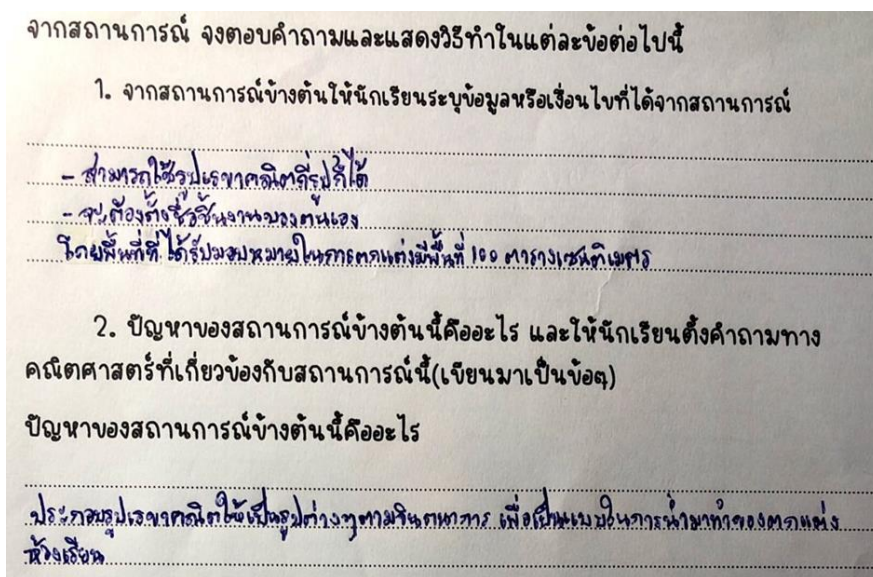 จากสถานการณ์ จงตอบคำถามและแสดงวิธีทำในแต่ละข้อต่อไปนี้
1. จากสถานการณ์ข้างต้นให้นักเรียนระบุข้อมูลหรือเงื่อนไขที่ได้จากสถานการณ์
- สามารถใช้รูปเรขาคณิตกี่รูปก็ได้
- จะต้องตั้งชื่อชิ้นงานของตนเอง
โดยพื้นที่ที่ได้รับมอบหมายในการตกแต่งมีพื้นที่ 100 ตารางเซนติเมตร
2. ปัญหาของสถานการณ์ข้างต้นนี้คืออะไร และให้นักเรียนตั้งคำถามทาง
คณิตศาสตร์ที่เกี่ยวข้องกับสถานการณ์นี้(เขียนมาเป็นข้อๆ)
ปัญหาของสถานการณ์ข้างต้นนี้คืออะไร
ประกอบรูปเรขาคณิตให้เป็นรูปต่างๆตามจินตนาการ เพื่อเป็นแบบในการนำมาทำของตกแต่ง
ห้องเรียน